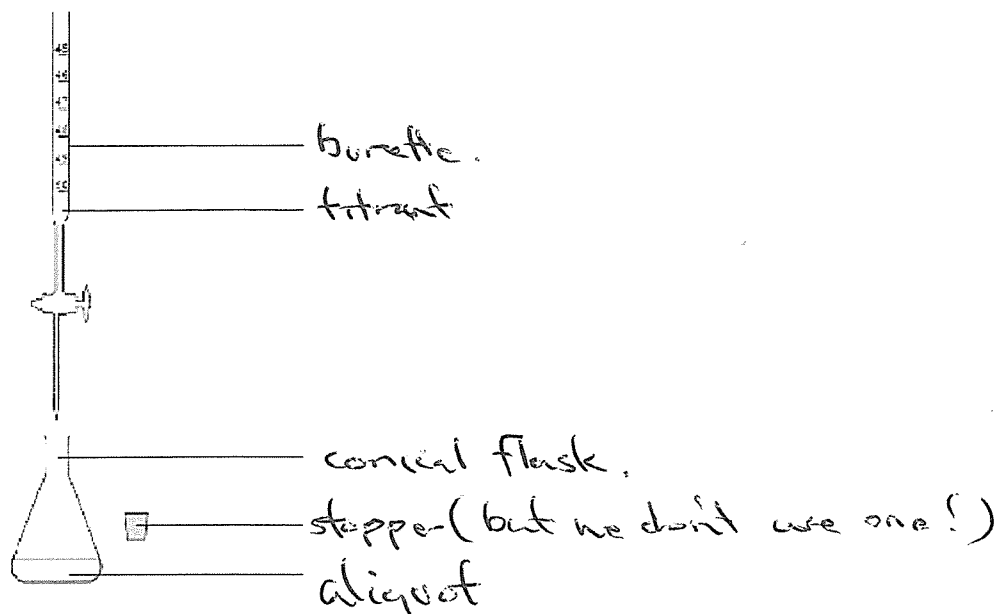 burette.
titrant
conical flask.
stopper (but we don't use one!)
aliquot